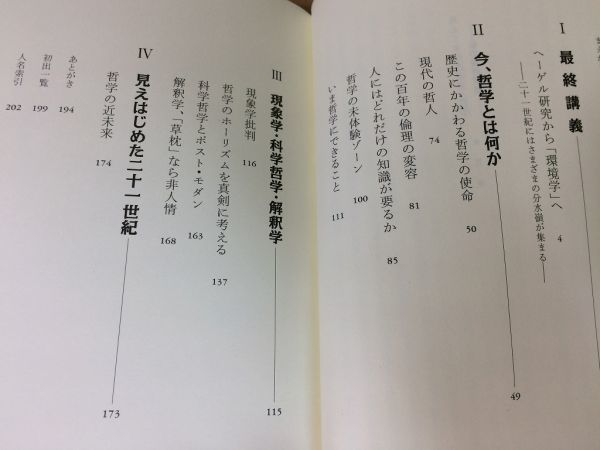 I
最終講義
ヘーゲル研究から「環境学」へ 4
――二十一世紀にはさまざまの分水嶺が集まる――
II
今、哲学とは何か 49
歴史にかかわる哲学の使命 50
現代の哲人 74
この百年の倫理の変容 81
人にはどれだけの知識が要るか 85
哲学の未体験ゾーン 100
いま哲学にできること 111
III
現象学・科学哲学・解釈学 115
現象学批判 116
哲学のホーリズムを真剣に考える 137
科学哲学とポスト・モダン 163
解釈学、「草枕」なら非人情 168
IV
見えはじめた二十一世紀 173
哲学の近未来 174
あとがき 194
初出一覧 199
人名索引 202